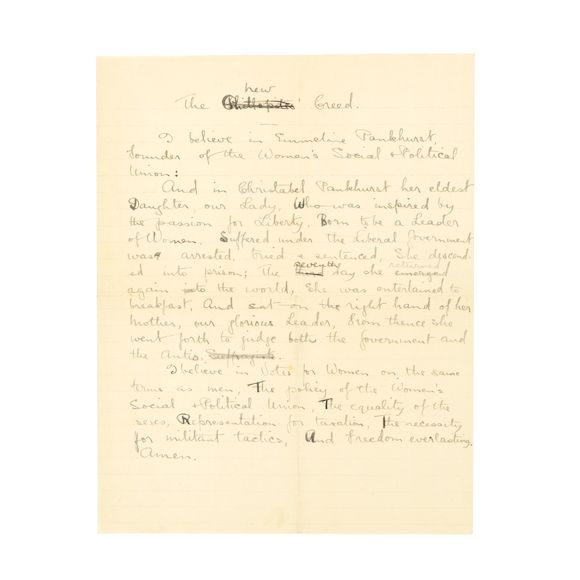 new
The Creed.
I believe in Emmeline Pankhurst,
founder of the Women's Social & Political
Union:
And in Christabel Pankhurst her eldest
Daughter, our Lady, Who was inspired by
the passion for Liberty, Born to be a Leader
of Women. Suffered under the Liberal Government
was arrested, tried & sentenced, She descend-
ed into prison; The seventh day she returned
again to the world, She was entertained to
breakfast, And sat on the right hand of her
mother, our glorious Leader, From thence she
went forth to judge both the Government and
the Antis.
I believe in Votes for Women on the same
terms as men, The policy of the Women's
Social & Political Union, The equality of the
sexes, Representation for taxation, The necessity
for militant tactics, And Freedom everlasting.
Amen.